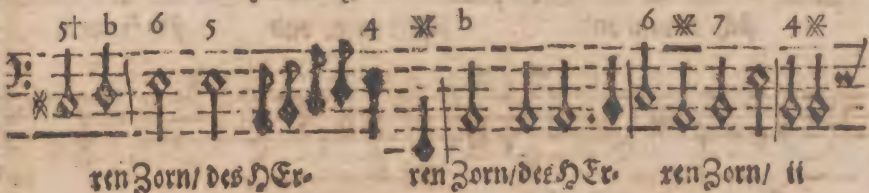 5† b 6 5 4 ※ b 6 ※ 7 4 ※
ren Zorn/ des HEr- ren Zorn/ des HEr- ren Zorn/ ii